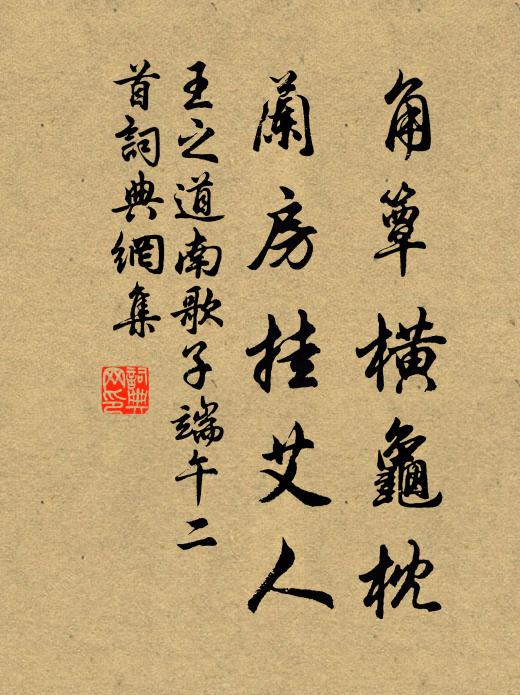 角簟橫龜枕
蘭房挂艾人
王之道南歌子端午二
首詞典網集
詞典
网印